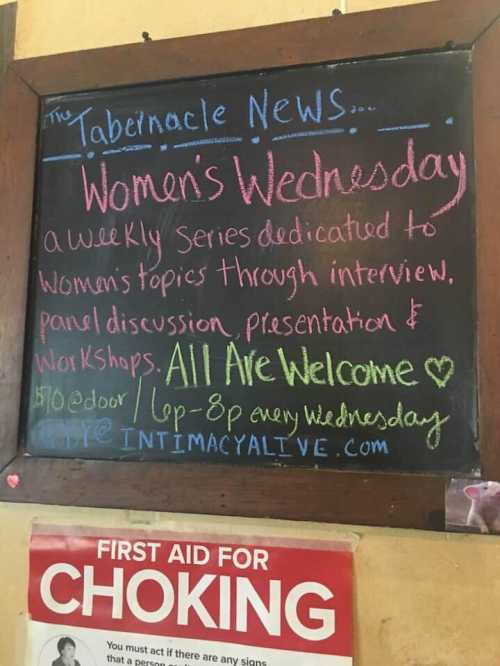 The Tabernacle News...
Women's Wednesday
a weekly series dedicatied to
Women's topics through interview,
panel discussion, presentation &
Workshops. All Are Welcome
@door / 6p-8p every Wednesday
@ INTIMACYALIVE.COM
FIRST AID FOR
CHOKING
You must act if there are any signs
that a person